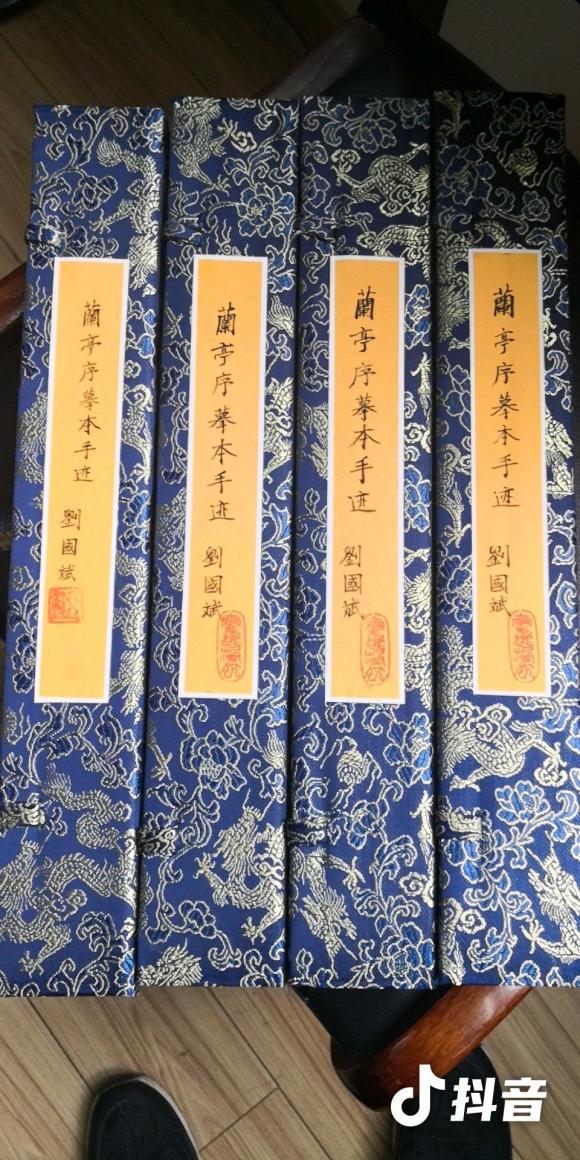 蘭亭序摹本手迹
劉國斌
蘭亭序摹本手迹
劉國斌
蘭亭序摹本手迹
劉國斌
蘭亭序摹本手迹
劉國斌
抖音